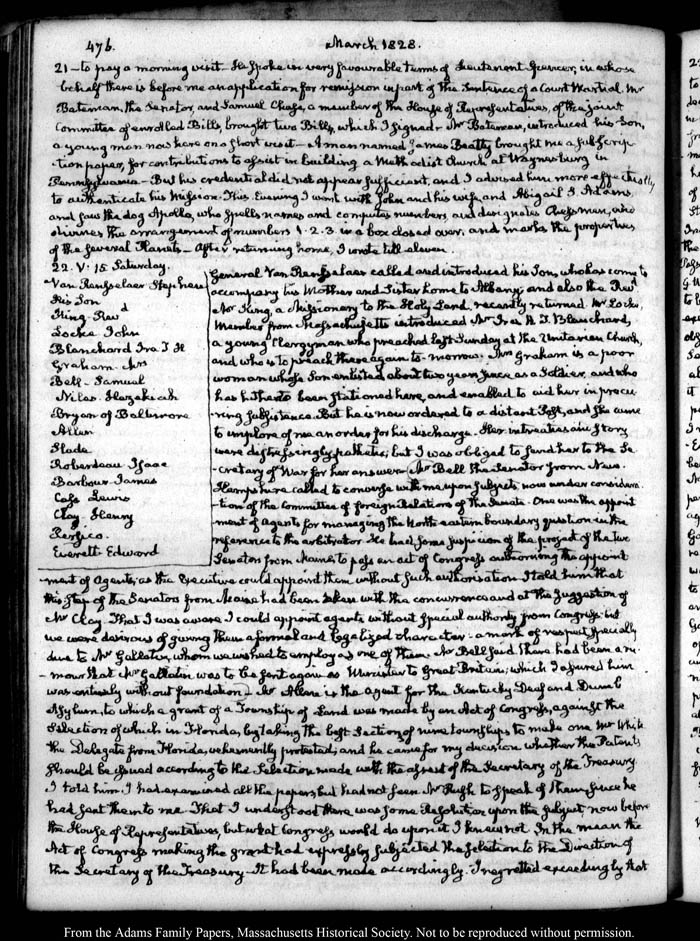 476.
March 1828.
21 — to pay a morning visit. He spoke in very favourable terms of Lieutenant Spencer, in whose
behalf there is before me an application for remission in part of the Sentence of a Court Martial. Mr
Bateman, the Senator, and Samuel Chase, a member of the House of Representatives, of the joint
Committee of enrolled Bills, brought two Bills, which I signed. Mr Bateman, introduced his Son,
a young man now here on a short visit — A man named James Beatty brought me a subscrip-
tion paper, for contributions to assist in building a Methodist Church at Waynesburg in
Pennsylvania — But his credential did not appear sufficient, and I advised him more effectually
to authenticate his Mission. This Evening I went with John and his wife and Abigail S. Adams,
and saw the dog Apollo, who spells names and computes numbers, and designates Chessmen, and
divines the arrangement of numbers 1. 2. 3. in a box closed over, and marks the properties
of the several Planets — After returning home, I wrote till eleven.
22. V. 15. Saturday.
Van Rensselaer Stephen
His Son
King Revd
Locke John
Blanchard Ira T. H
Graham Mrs
Bell. Samuel
Niles. Hezekiah
Bryan of Baltimore
Allen
Slade
Roberdeau Isaac
Barbour. James
Cass Lewis
Clay. Henry
Persico.
Everett. Edward
General Van Rensselaer called and introduced his Son, who has come to
accompany his Mother and Sister home to Albany; and also the Revd
Mr King, a Missionary to the Holy Land, recently returned. Mr Locke,
Member from Massachusetts introduced Mr Ira H. T. Blanchard,
a young Clergyman who preached last Sunday at the Unitarian Church,
and who is to preach there again to-morrow. Mrs Graham is a poor
woman whose Son enlisted about two years since as a Soldier, and who
has hitherto been stationed here, and enabled to aid her in procu-
ring subsistence. But he is now ordered to a distant Post, and she came
to implore of me an order for his discharge. Her intreaties in story
were distressingly pathetic; but I was obliged to send her to the Se-
cretary of War for her answer. Mr Bell the Senator from New-
Hampshire called to converse with me upon subjects now under considera-
tion of the Committee of foreign Relations of the Senate. One was the appoint
ment of agents for managing the North eastern boundary question in the
reference to the arbitrator. He had some suspicion of the project of the two
Senators from Maine to pass an act of Congress authorising the appoint
ment of Agents; as the Executive could appoint them without such authorisation. I told him that
this step of the Senators from Maine had been taken with the concurrence and at the suggestion of
Mr Clay. That I was aware I could appoint agents without special authority from Congress. but
we were desirous of giving them a formal and legalized character — a mark of respect specially
due to Mr Gallatin, whom we wished to employ as one of them. Mr Bell said there had been a ru-
mour that Mr Gallatin was to be sent again as Minister to Great Britain; which I assured him
was entirely without foundation. Mr Allen is the agent for the Kentucky Deaf and Dumb
Asylum, to which a grant of a Township of Land was made by an Act of Congress, against the
selection of which in Florida, by taking the best Section of nine townships to make one, Mr White
the Delegate from Florida, vehemently protested, and he came for my decision whether the Patents
should be issued according to the Selection made with the assent of the Secretary of the Treasury.
I told him I had examined all the papers, but had not seen Mr Rush to speak of them, since he
had sent them to me. That I understood there was some Resolution upon the subject, now before
the House of Representatives, but what Congress would do upon it I knew not. In the mean the
Act of Congress making the grant had expressly subjected the selection to the Direction of
the Secretary of the Treasury. It had been made accordingly. I regretted exceedingly that
From the Adams Family Papers, Massachusetts Historical Society. Not to be reproduced without permission.